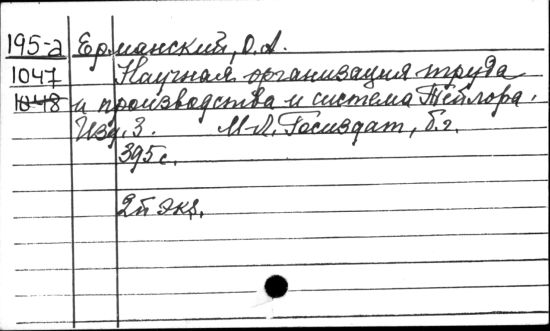 195-а Ерманский, О.А.
1047 Научная организация труда
1048 и производства и система Тейлора.
Изд. 3. М-Л. Госиздат, б.г.
395 с.
2й экз.